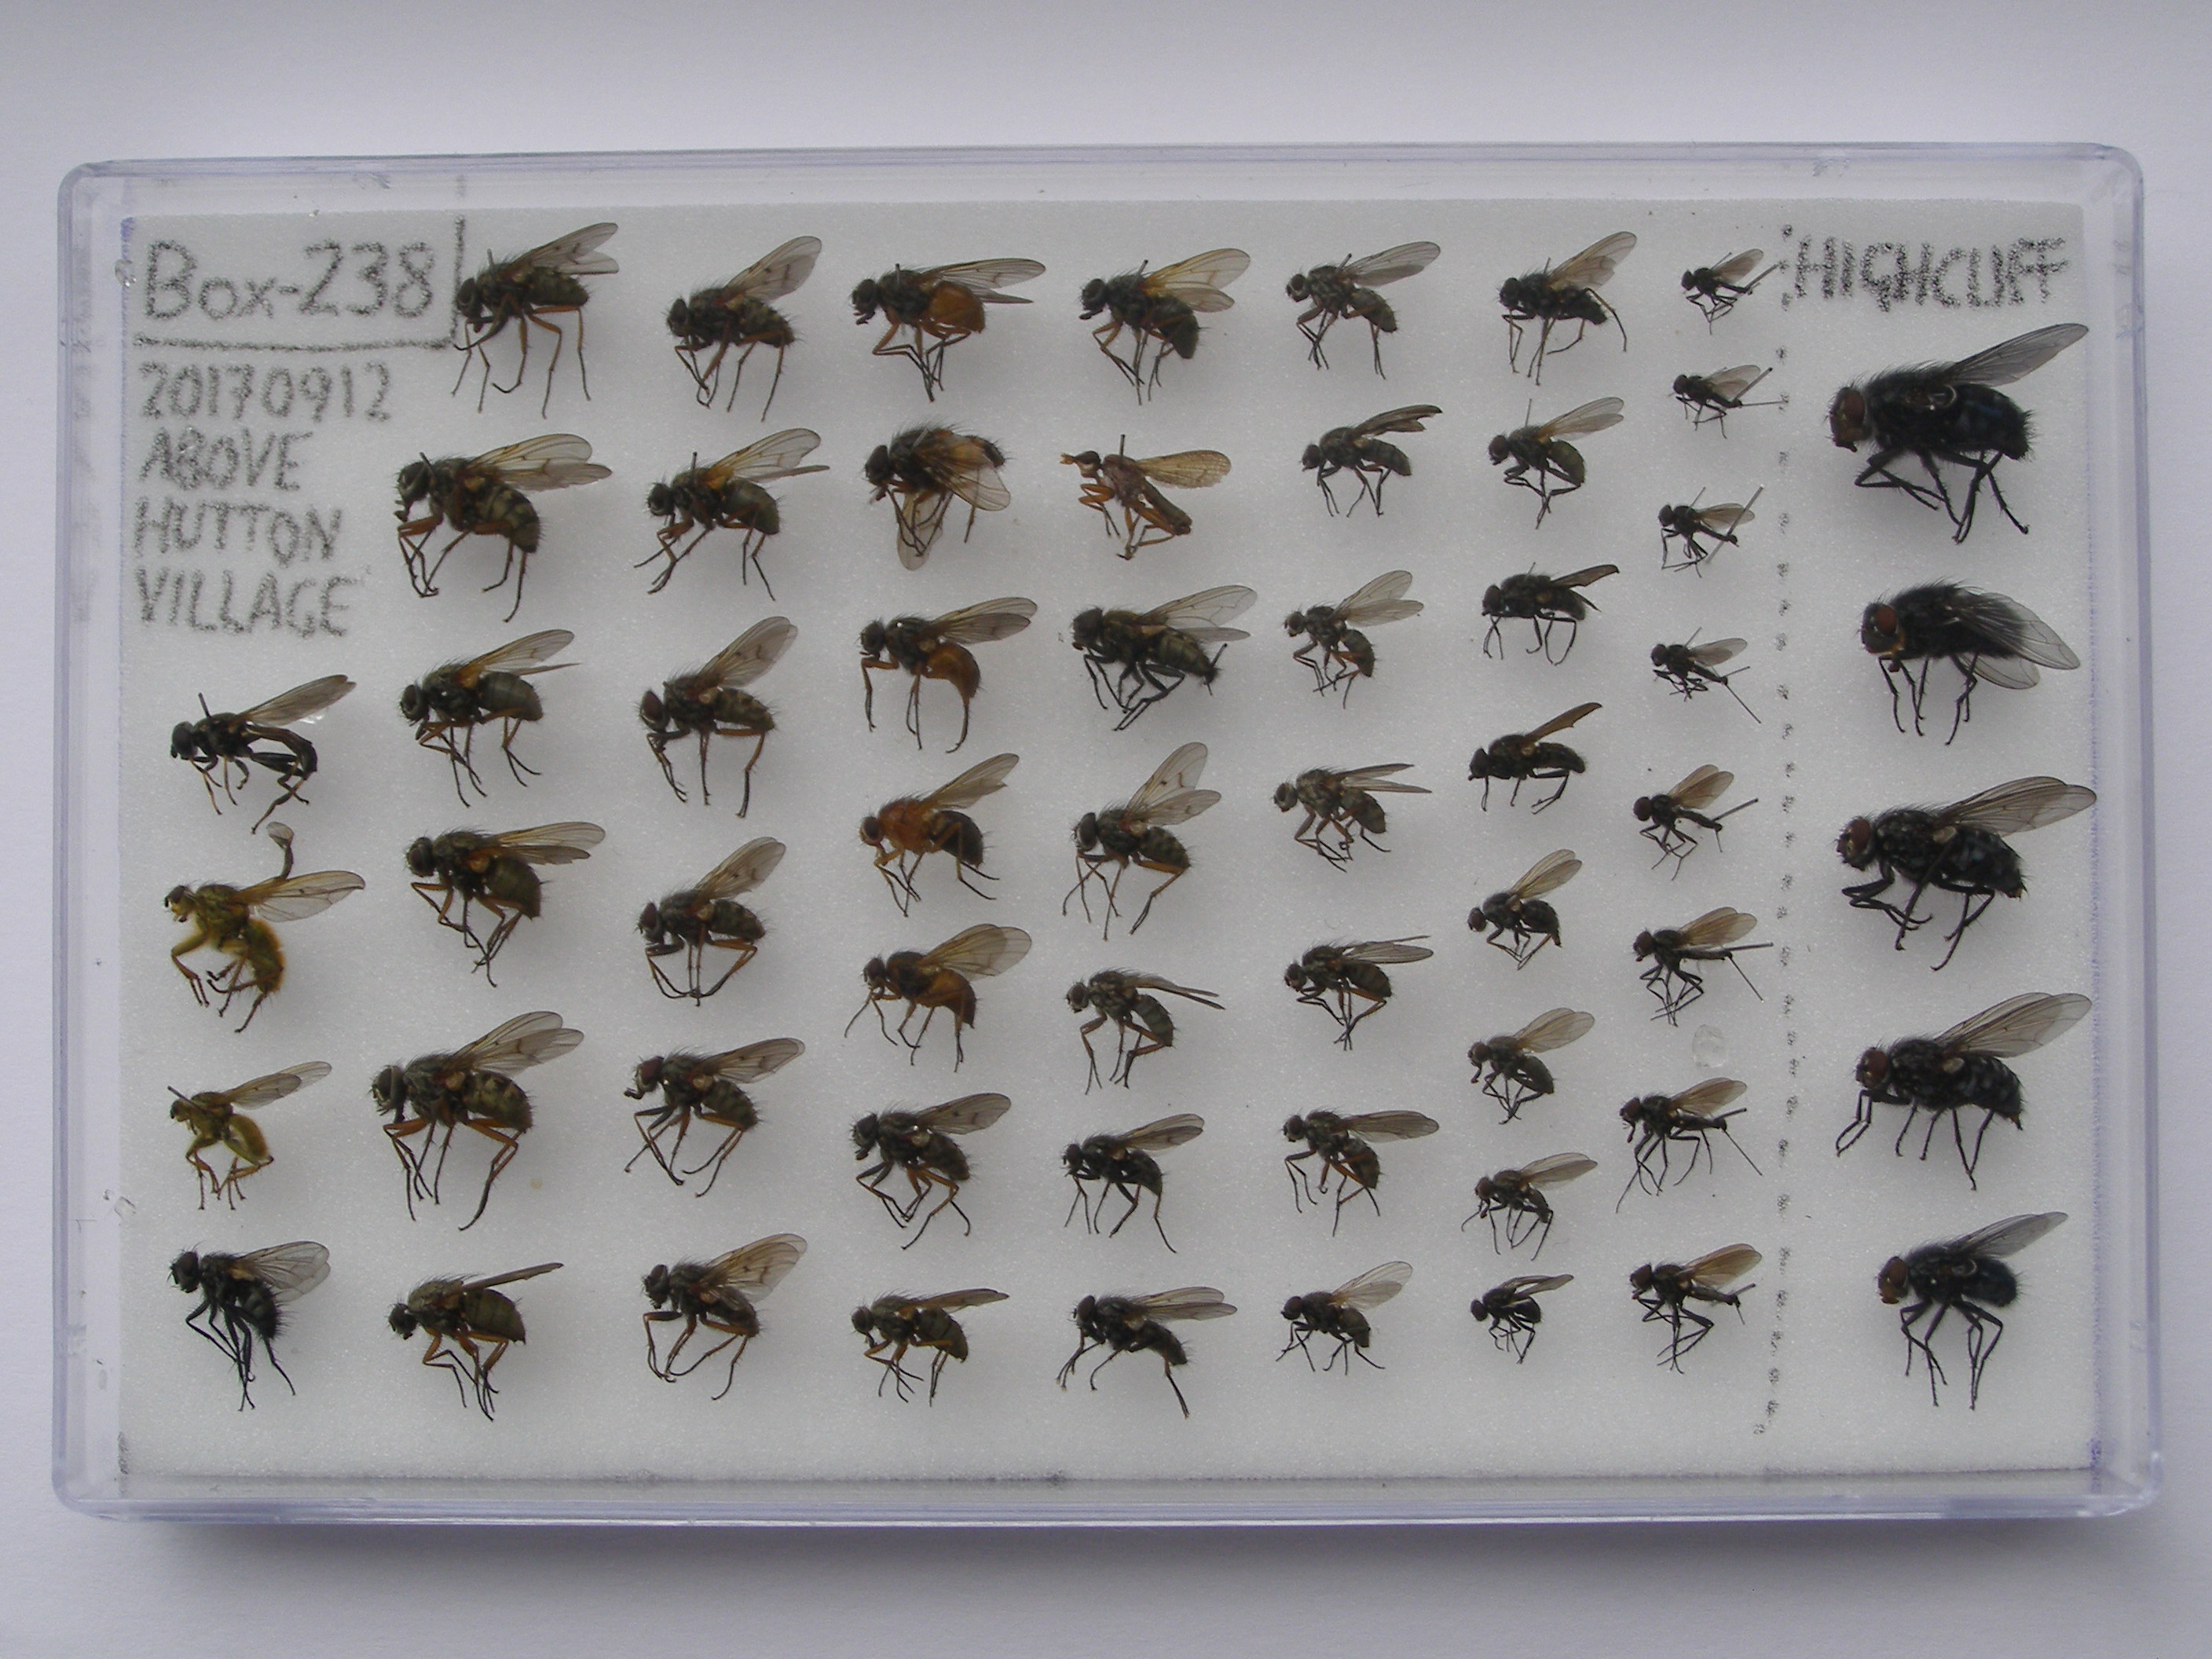 Box-238
20170912
ABOVE
HUTTON
VILLAGE
HIGHCLIFF